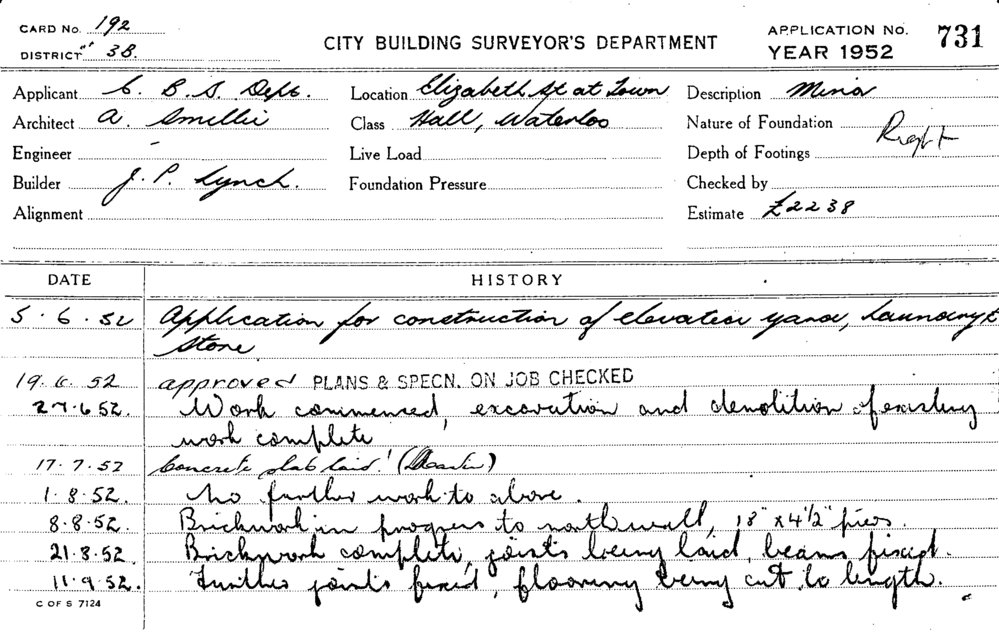 CARD No. 192
DISTRICT " 38.
CITY BUILDING SURVEYOR'S DEPARTMENT
APPLICATION No. 731
YEAR 1952
Applicant C. B. S. Dept. Location Elizabeth St at Town Description Minor
Architect A. Smellie Class Hall, Waterloo Nature of Foundation
Engineer - Live Load Depth of Footings
Builder J. P. Lynch. Foundation Pressure Checked by
Alignment Estimate £2238
DATE HISTORY
5.6.52 Application for construction of elevated yard, Laundry &
Store
19.6.52 approved PLANS & SPECN. ON JOB CHECKED
27.6.52. Work commenced, excavation and demolition of existing
work complete
17.7.52 Concrete slab laid.
1.8.52. No further work to above.
8.8.52. Brickwork in progress to north wall, 18" x 4½" piers.
21.8.52. Brickwork complete, joists being laid, beams fixed.
11.9.52. Further joists fixed, flooring being cut to length.
C OF S 7124